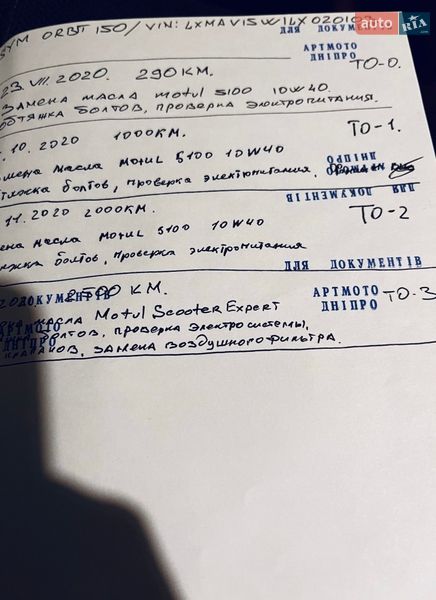 SYM ORBIT 150 / VIN: LXMAV15W1LX020103
auto RIA.com
ДЛЯ ДОКУМЕНТІВ
АРТМОТО
ДНІПРО
23. VII. 2020. 290 КМ. ТО-0.
ЗАМЕНА МАСЛА MOTUL 5100 10W40
ОБТЯЖКА БОЛТОВ, ПРОВЕРКА ЭЛЕКТРОПИТАНИЯ.
10. 2020 1000 КМ. ТО-1.
МАСЛА MOTUL 5100 10W40
БОЛТОВ, ПРОВЕРКА ЭЛЕКТРОПИТАНИЯ.
ДНІПРО
ДЛЯ ДОКУМЕНТІВ
11. 2020 2000 КМ. ТО-2
МАСЛА MOTUL 5100 10W40
БОЛТОВ, ПРОВЕРКА ЭЛЕКТРОПИТАНИЯ
ДЛЯ ДОКУМЕНТІВ
АРТМОТО
ДНІПРО
ДОКУМЕНТІВ
2500 КМ. ТО-3
МАСЛА Motul Scooter Expert
АРТМОТО
ДНІПРО
БОЛТОВ, ПРОВЕРКА ЭЛЕКТРОСИСТЕМЫ,
КЛАПАНОВ, ЗАМЕНА ВОЗДУШНОГО ФИЛЬТРА.